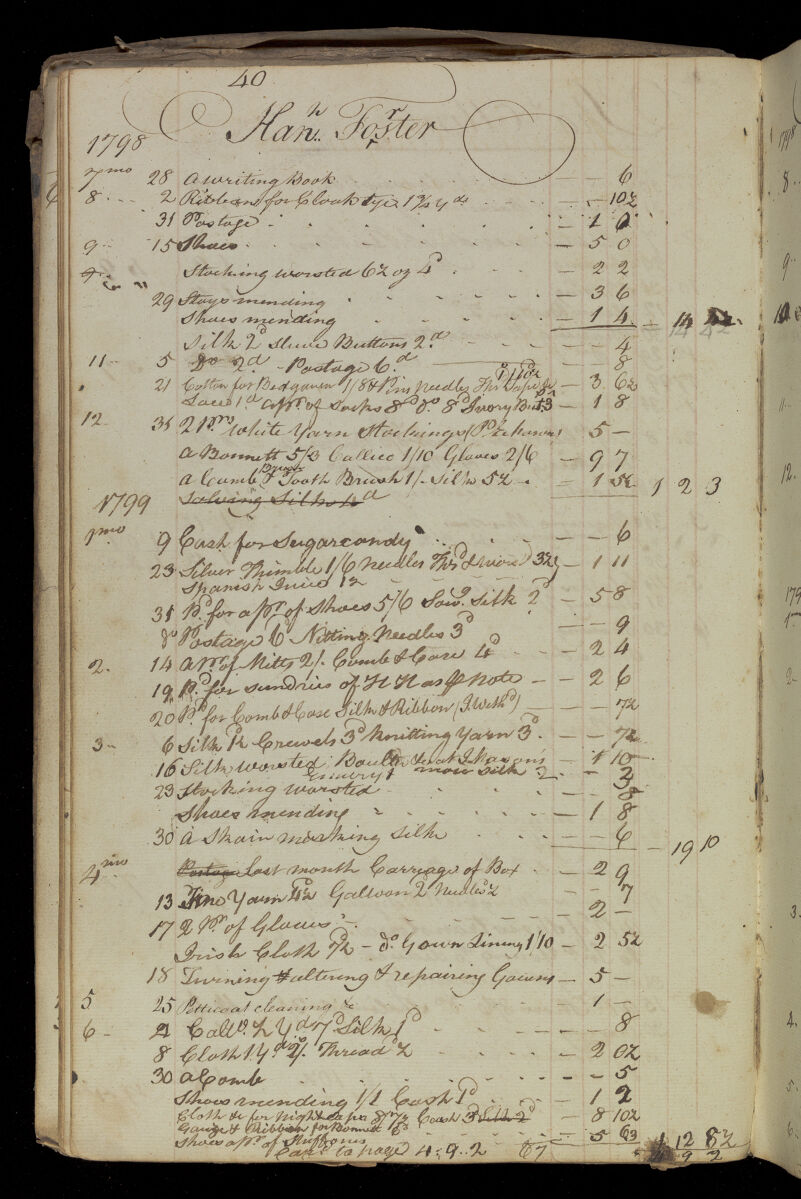 40
Hanh. Forster
1798
7mo 28 a writing Book — — 6
8 2 Ribbons for Cloak &c 1¾ yds — — 10½
31 Postage — 1 0
9 15 Shoes — 5 0
Stocking worsted 6½ oz 4d — 2 2
29 Stays mending — 3 6
Shoes mending — 1 4 — 14
Silk 2d Sleeve Buttons 2d — 4
11 5 Do 2d - Postage 6d — 8
21 Cotton for Bedgown 1/8 & Pins Needles — 3 6½
Lace 1d a pr of Socks 8d do 8d Ivory — 1 8
12 31 2 prs White Yarn Stockings 5 —
a Bonnett 5/3 Callico 1/10 Gloves 2/6 — 9 7
a Comb & Brush Tooth Brush 1/- Silk 5½ — 1 5½ 1 2 3
1799
1mo 9 Cash for Sugarcandy — — 6
23 Silver Thimble 1/6 Needles Thrd & word 3½ — 1 11
Spanish Juice 1½
31 Pd for a pr of Shoes 5/6 Sewg. Silk 2d — 5 8
do Postage 6 Nitting Needles 3d — — 9
2 14 a pr of Mitts 2/- Comb & Case 4d — 2 4
19 Pd for sundries of H H as note — 2 6
20 Pd for Comb & Case Silk & Ribbon — — 7½
3 6 Silk 1½ Crewels 3d Knitting Yarn 3d — — 7½
16 Silk worsted — 1 10
more Silk 2 — 3
23 Stocking worsted — 8
Shoes mending — 1 8
30 a Skain marking Silk — — 6 — 19 10
4mo Postage Last month Carriage of Box — 2 9
13 Yarn 4½ Galloon 2 Needles ½ — 7
17 2 pr of Gloves — 2 —
Irish Cloth 7½ - do Gown Lining 1/10 — 2 5½
18 Turning altering & repairing Gowns — 5 —
5 25 Petticoat cleaning &c — 1 —
6 4 Callo. ½ yd 7d Silk 1d — 8
8 Cloth 1 yd 2/. Thread ½ — 2 0½
30 a Comb — — 5
Shoes mending 1/1 Cash 1d — 1 2
Cloth &c for Night Cash 3d Silk 2d — 8 10½
Gauze & Ribbon for Bonnett
Shoes a pr of Stuff ones — 5 6 1 12 8½
Card to page 67 4 . 9 . 2 4 9 2